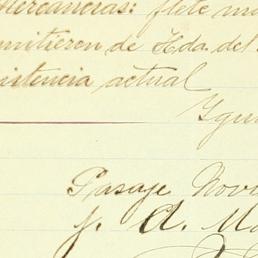 Mercancias: flete ma
mitieron de Hda. del
istencia actual
Ygu
Pasaje Novi
f. A. Ma